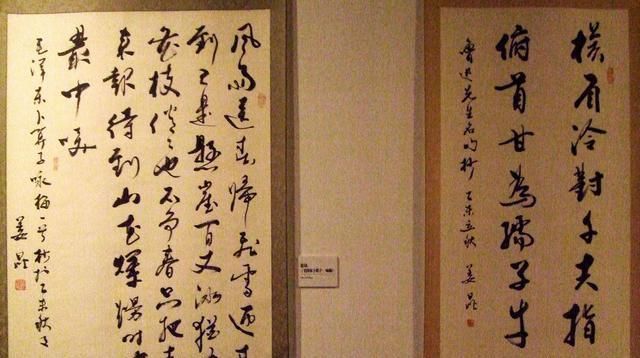 横眉冷對千夫指
俯首甘為孺子牛
魯迅先生名句抄 乙未立秋 姜昆
風雨送春歸飛雪迎春
到已是懸崖百丈冰猶
花枝俏俏也不争春只把春
來報待到山花爛熳時
叢中咲
毛泽东卜算子咏梅一首抄於乙未秋
姜昆